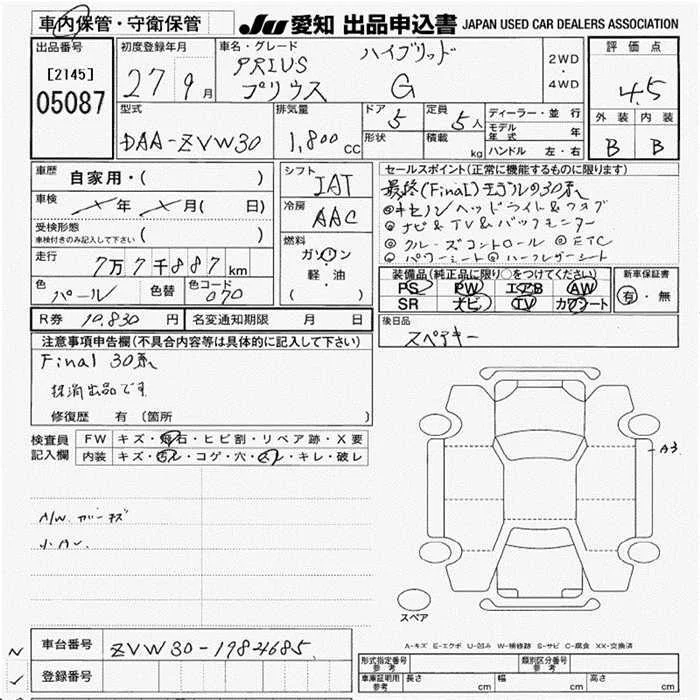 車内保管・守衛保管
JU 愛知 出品申込書 JAPAN USED CAR DEALERS ASSOCIATION
出品番号
[2145]
05087
初度登録年月
27 9月
車名・グレード
PRIUS ハイブリッド
プリウス G
2WD
・
4WD
評価点
4.5
外装 内装
B B
型式
DAA-ZVW30
排気量
1,800cc
ドア 5
形状
定員 5人
積載 kg
ディーラー・並行
モデル年式 年
ハンドル 左・右
車歴 自家用・( )
車検 年 月( 日)
受検形態
車検付きのみ記入して下さい ( )
走行 7万7千887km
色 パール 色替 色コード 070
シフト IAT
冷房 AAC
燃料
ガソリン
軽・油
( )
セールスポイント(正常に機能するものに限り)
最終(Final)モデルの30系
◎キセノンヘッドライト&フォグ
◎ナビ&TV&バックモニター
◎クルーズコントロール ◎ETC
◎パワーシート ◎ハーフレザーシート
装備品(純正品に限り○をつけてください)
PS PW エアB AW
SR ナビ TV カワシート
新車保証書
有・無
後日品
スペアキー
R券 10,830円 名変通知期限 月 日
注意事項申告欄(不具合内容等は具体的に記入して下さい)
Final 30系
抹消出品です
修復歴 有 〔箇所 〕
検査員記入欄
FW キズ・飛石・ヒビ割・リペア跡・X要
内装 キズ・汚レ・コゲ・穴・スレ・キレ・破レ
A/W ガリキズ
A3
スペア
A-キズ E-エクボ U-凹み W-補修跡 S-サビ C-腐食 XX-交換済
車台番号 ZVW30-1984685
登録番号
型式指定番号 参考
類別区分番号 参考
車庫証明用 参考 長さ cm 幅 cm 高さ cm